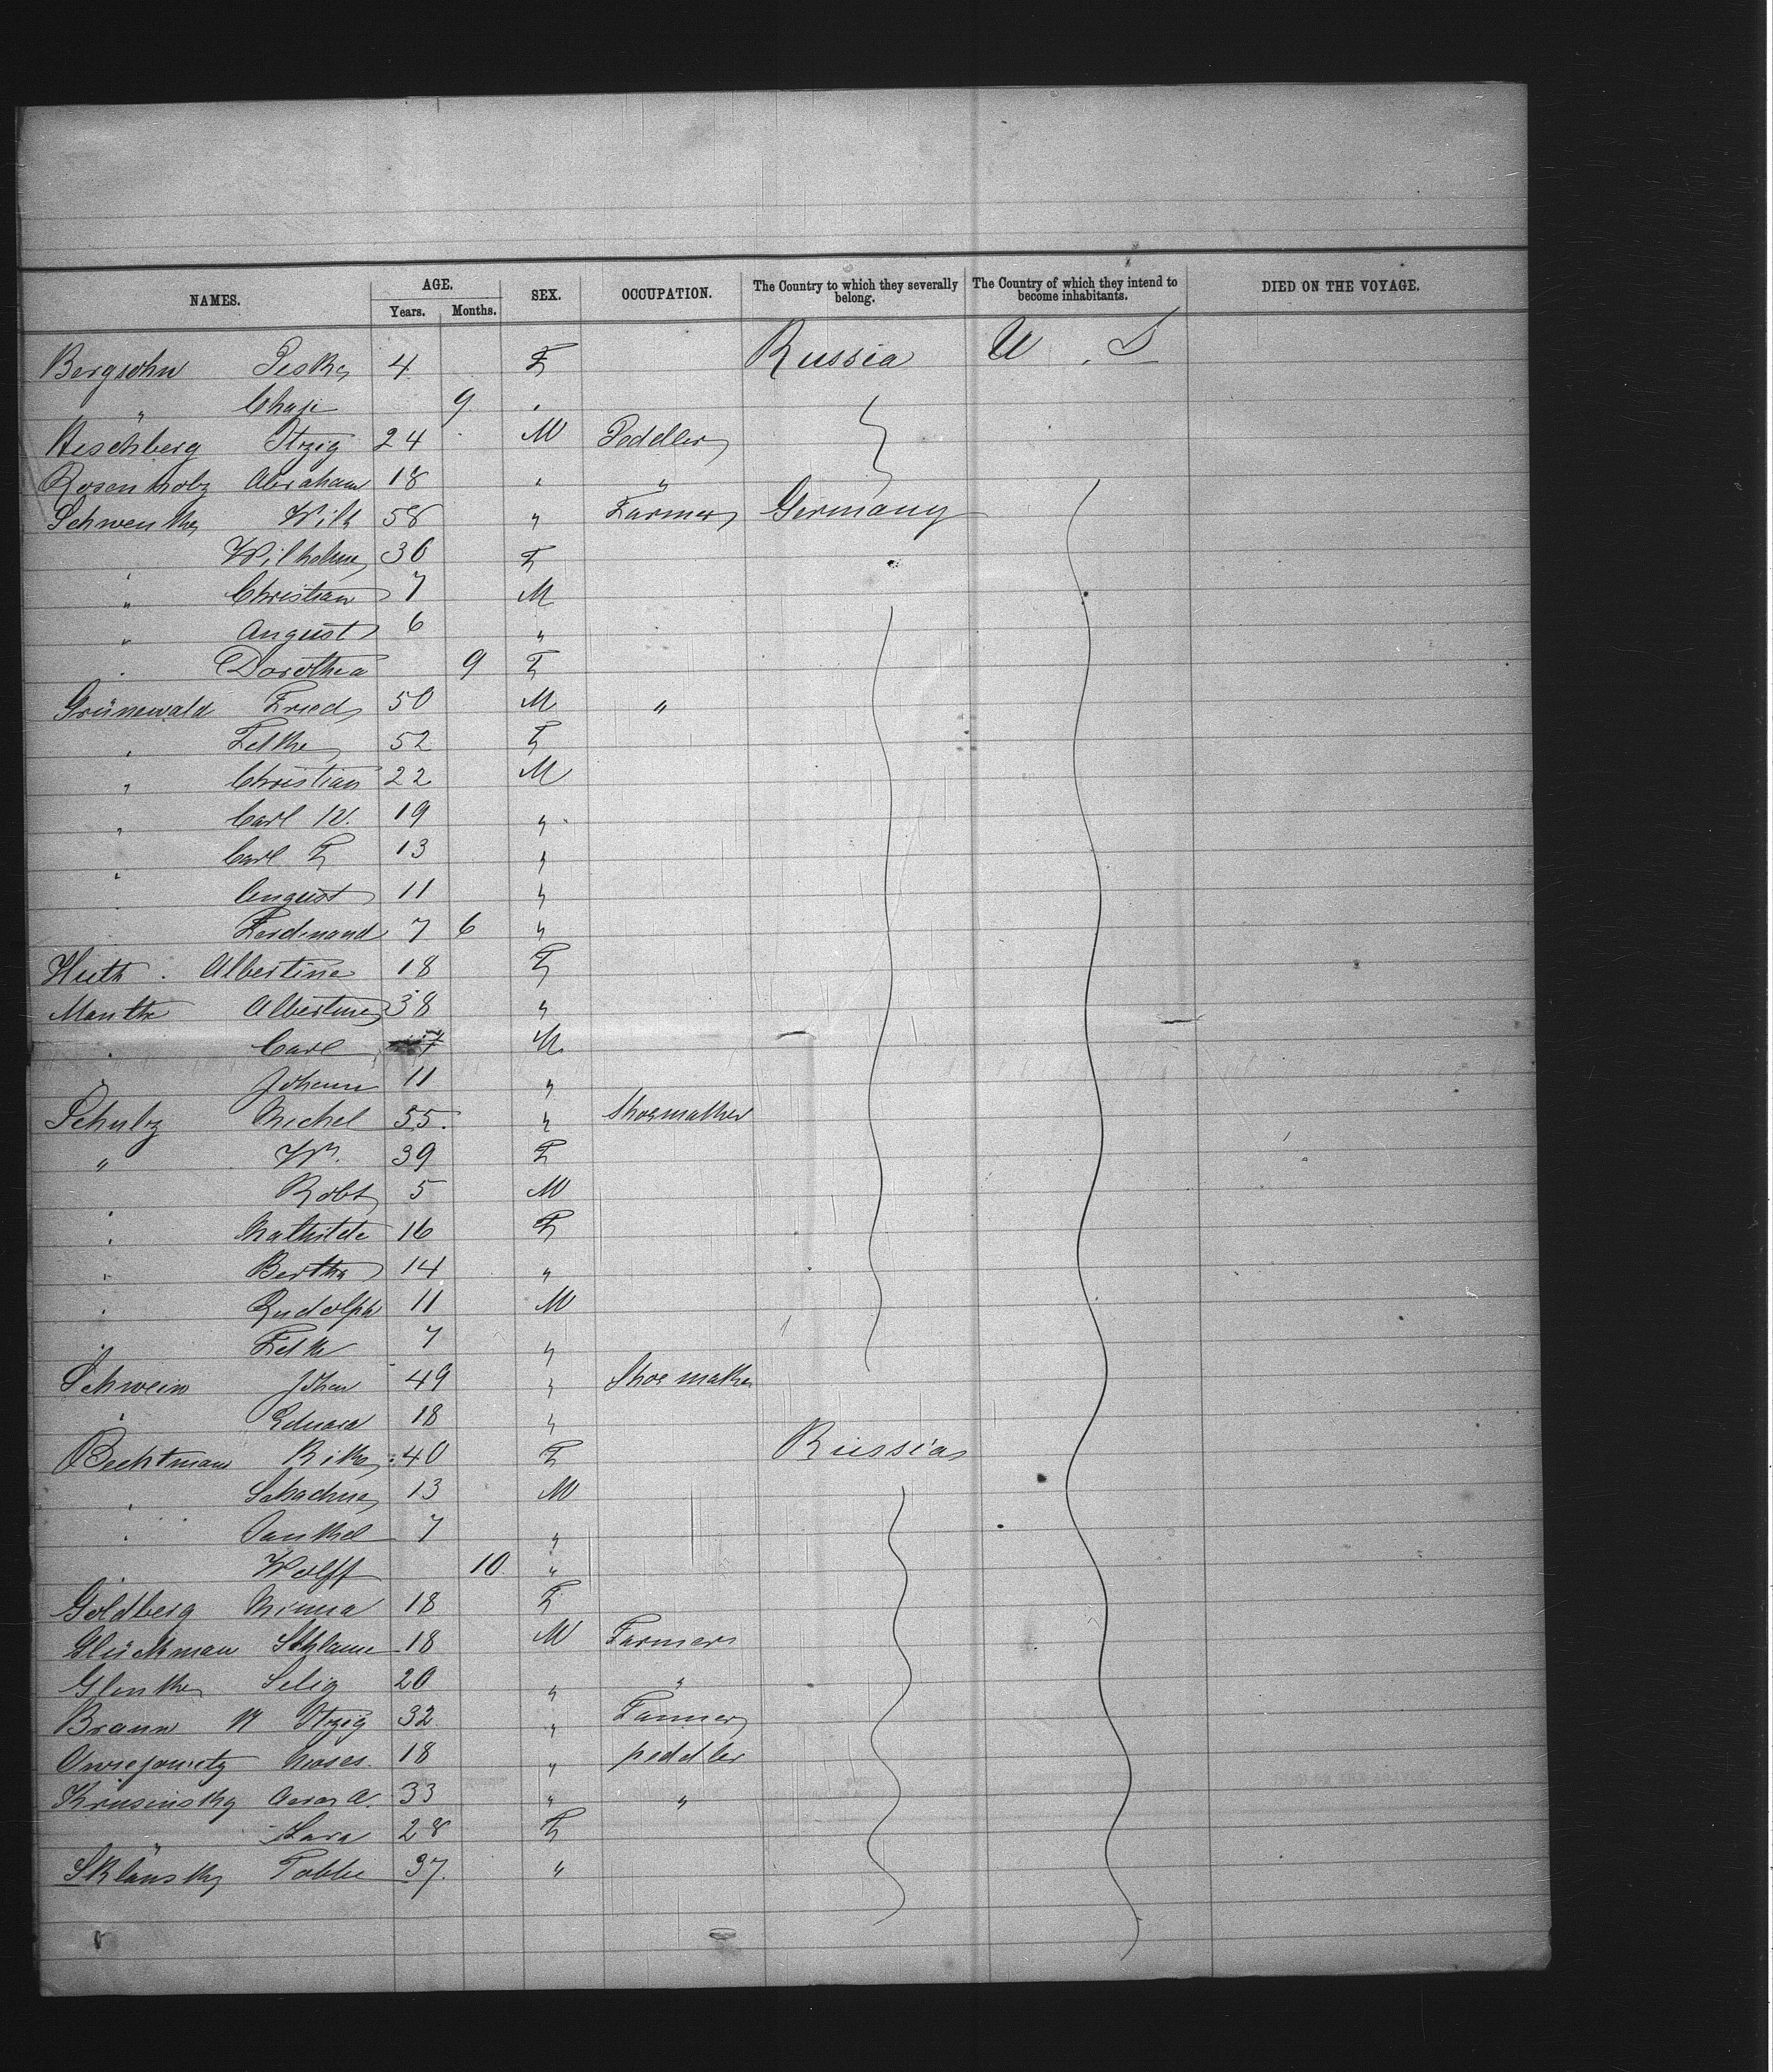 NAMES. AGE. SEX. OCCUPATION. The Country to which they severally belong. The Country of which they intend to become inhabitants. DIED ON THE VOYAGE.
Years. Months.
Bergsohn Peske 4 F Russia U. S
" Chaje 9 "
Heschberg Itzig 24 M Peddler
Rosenholz Abraham 18 " "
Schwenke Wilh 58 " Farmer Germany
Wilhelme 36 F
" Christian 7 M
" August 6 "
" Dorothea 9 F
Grünewald Fried 50 M "
" Felke 52 F
" Christian 22 M
" Carl W. 19 "
" Carl F 13 "
August 11 "
Ferdinand 7 6 "
Huth Albertine 18 F
Manthe Albertine 38 "
" Carl M
" Johann 11 "
Schulz Michel 55 " Shoemaker
" Wn. 39 F
Robt 5 M
" Mathilde 16 F
" Bertha 14 "
" Rudolph 11 M
" Felke 7 "
Schwein Johan 49 " Shoemaker
" Eduard 18 "
Bechtman Rike 40 F Russia
" Schachne 13 M
" Jankel 7 "
" Wolff 10 "
Goldberg Minna 18 F
Glückman Schlaum 18 M Farmer
Glenke Selig 20 " "
Braun M Itzig 32 " Farmer
Moses 18 " peddler
Krusinsky Aaron A. 33 " "
" Sara 28 F
Sklansky Tobbe 37 "